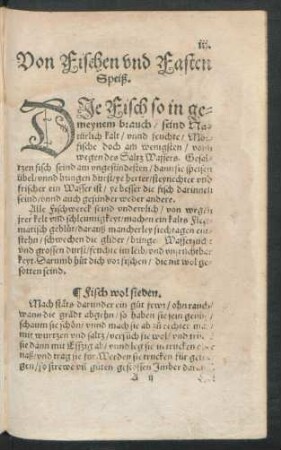 iij.
Von Fischen vnd Fasten
Speiß.
DIe Fisch so in ge-
meynem brauch / seind Na-
türlich kalt / vnnd feuchte / Mör-
fische doch am wenigsten / vonn
wegen des Saltz Wassers. Gesal-
tzen fisch seind am vngesündesten / dann sie speisen
übel / vnnd bringen durst / ye herter / steynechter vnd
frischer ein Wasser ist / ye besser die fisch darinnen
seind / vnnd auch gesünder weder andere.
Alle Fischwerck seind vndewlich / von wegen
jrer kelt vnd schleimigkeyt / machen ein kalts Fleg-
matisch geblüt / darauß mancherley siechtagen ent-
stehn / schwechen die glider / bringen Wassersucht
vnd grossen durst / feuchte im leib / vnd
keyt. Darumb hüt dich vor fischen / die nit wol ge-
sotten seind.
¶ Fisch wol sieden.
Mach stäts darunder ein gůt fewr / ohn rauch /
wann die grädt abgehn / so haben sie jein
schaum sie schön / vnnd mach sie ab zů rechter
mit wurtzen vnd saltz / versůch sie wol / vnd
sie dann mit Essig ab / vnnd leg sie in trucken
naß / vnd trag sie für. Werden sie trucken für getra-
gen / so strewe vff gůten gestossen Imber
A ij